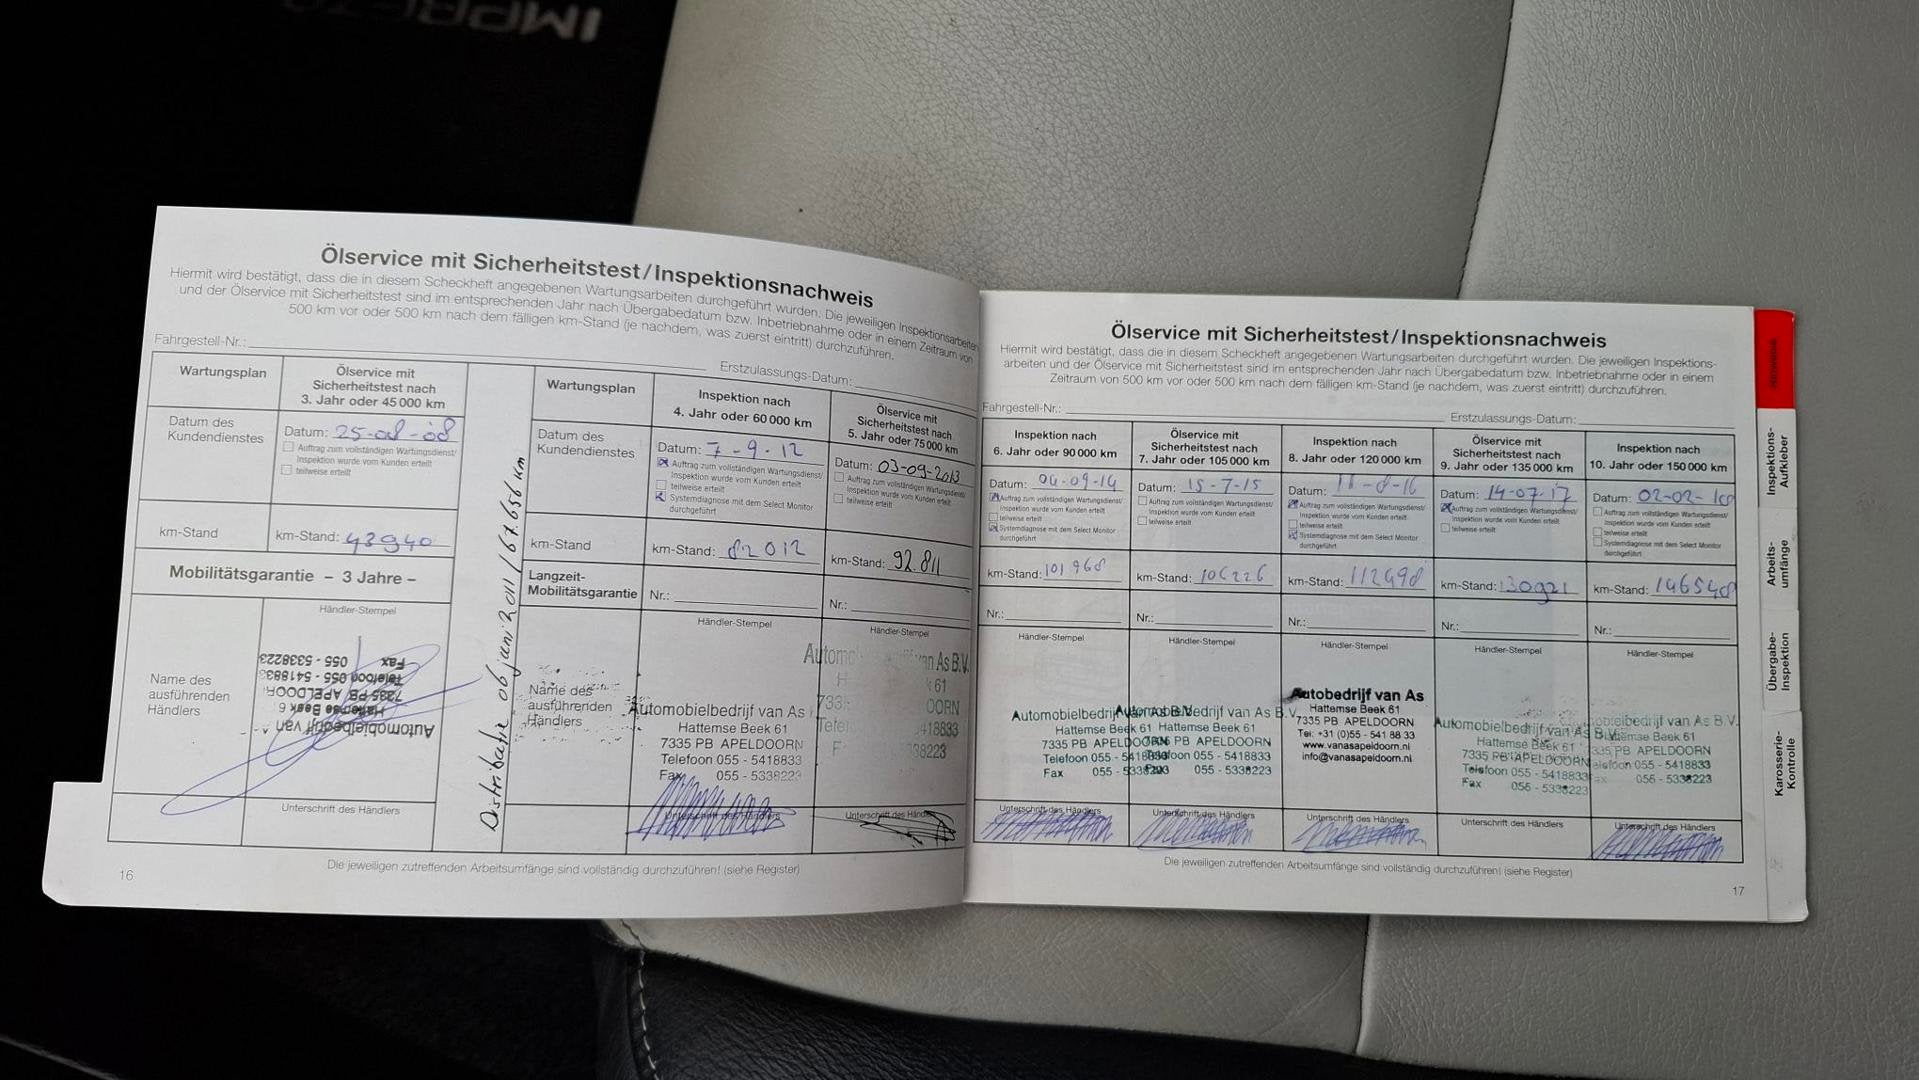 IMPREZA
Ölservice mit Sicherheitstest/Inspektionsnachweis
Hiermit wird bestätigt, dass die in diesem Scheckheft angegebenen Wartungsarbeiten durchgeführt wurden. Die jeweiligen Inspektionsarbeiten
und der Ölservice mit Sicherheitstest sind im entsprechenden Jahr nach Übergabedatum bzw. Inbetriebnahme oder in einem Zeitraum von
500 km vor oder 500 km nach dem fälligen km-Stand (je nachdem, was zuerst eintritt) durchzuführen.
Fahrgestell-Nr.:
Erstzulassungs-Datum:
Wartungsplan
Ölservice mit
Sicherheitstest nach
3. Jahr oder 45 000 km
Datum des
Kundendienstes
Datum: 25-08-08
Auftrag zum vollständigen Wartungsdienst/
Inspektion wurde vom Kunden erteilt
teilweise erteilt
km-Stand
km-Stand: 43940
Mobilitätsgarantie – 3 Jahre –
Name des
ausführenden
Händlers
Händler-Stempel
Automobielbedrijf van
Hattemse Beek 6
7335 PB APELDOOR
Telefoon 055 - 541883
Fax 055 - 5338223
Unterschrift des Händlers
Distributie 06 juni 2011 / 67.656 km
Wartungsplan
Inspektion nach
4. Jahr oder 60 000 km
Ölservice mit
Sicherheitstest nach
5. Jahr oder 75 000 km
Datum des
Kundendienstes
Datum: 7-9-12
Auftrag zum vollständigen Wartungsdienst/
Inspektion wurde vom Kunden erteilt
teilweise erteilt
Systemdiagnose mit dem Select Monitor
durchgeführt
Datum: 03-09-2013
Auftrag zum vollständigen Wartungsdienst/
Inspektion wurde vom Kunden erteilt
teilweise erteilt
km-Stand
km-Stand: 82012
km-Stand: 92.811
Langzeit-
Mobilitätsgarantie
Nr.:
Nr.:
Name des
ausführenden
Händlers
Händler-Stempel
Automobielbedrijf van As
Hattemse Beek 61
7335 PB APELDOORN
Telefoon 055 - 5418833
Fax 055 - 5338223
Unterschrift des Händlers
Händler-Stempel
van As B.V.
61
OORN
418833
338223
Unterschrift des Händlers
Die jeweiligen zutreffenden Arbeitsumfänge sind vollständig durchzuführen! (siehe Register)
16
Ölservice mit Sicherheitstest/Inspektionsnachweis
Hiermit wird bestätigt, dass die in diesem Scheckheft angegebenen Wartungsarbeiten durchgeführt wurden. Die jeweiligen Inspektions-
arbeiten und der Ölservice mit Sicherheitstest sind im entsprechenden Jahr nach Übergabedatum bzw. Inbetriebnahme oder in einem
Zeitraum von 500 km vor oder 500 km nach dem fälligen km-Stand (je nachdem, was zuerst eintritt) durchzuführen.
Fahrgestell-Nr.:
Erstzulassungs-Datum:
Inspektion nach
6. Jahr oder 90 000 km
Ölservice mit
Sicherheitstest nach
7. Jahr oder 105 000 km
Inspektion nach
8. Jahr oder 120 000 km
Ölservice mit
Sicherheitstest nach
9. Jahr oder 135 000 km
Inspektion nach
10. Jahr oder 150 000 km
Datum: 04-09-14
Auftrag zum vollständigen Wartungsdienst/
Inspektion wurde vom Kunden erteilt
teilweise erteilt
Systemdiagnose mit dem Select Monitor
durchgeführt
Datum: 15-7-15
Auftrag zum vollständigen Wartungsdienst/
Inspektion wurde vom Kunden erteilt
teilweise erteilt
Datum: 11-8-16
Auftrag zum vollständigen Wartungsdienst/
Inspektion wurde vom Kunden erteilt
teilweise erteilt
Systemdiagnose mit dem Select Monitor
durchgeführt
Datum: 14-07-17
Auftrag zum vollständigen Wartungsdienst/
Inspektion wurde vom Kunden erteilt
teilweise erteilt
Datum: 02-02-18
Auftrag zum vollständigen Wartungsdienst/
Inspektion wurde vom Kunden erteilt
teilweise erteilt
Systemdiagnose mit dem Select Monitor
durchgeführt
km-Stand: 101968
km-Stand: 106226
km-Stand: 112498
km-Stand: 130921
km-Stand: 146548
Nr.:
Nr.:
Nr.:
Nr.:
Nr.:
Händler-Stempel
Händler-Stempel
Händler-Stempel
Händler-Stempel
Händler-Stempel
Automobielbedrijf van As B.V.
Hattemse Beek 61
7335 PB APELDOORN
Telefoon 055 - 5418833
Fax 055 - 5338223
Automobielbedrijf van As B.V.
Hattemse Beek 61
PB APELDOORN
Telefoon 055 - 5418833
055 - 5338223
Autobedrijf van As
Hattemse Beek 61
7335 PB APELDOORN
Tel: +31 (0)55 - 541 88 33
www.vanasapeldoorn.nl
info@vanasapeldoorn.nl
Automobielbedrijf van As B.V.
Hattemse Beek 61
7335 PB APELDOORN
Telefoon 055 - 5418833
Fax 055 - 5338223
Automobielbedrijf van As B.V.
Hattemse Beek 61
7335 PB APELDOORN
Telefoon 055 - 5418833
Fax 055 - 5338223
Unterschrift des Händlers
Unterschrift des Händlers
Unterschrift des Händlers
Unterschrift des Händlers
Unterschrift des Händlers
Die jeweiligen zutreffenden Arbeitsumfänge sind vollständig durchzuführen! (siehe Register)
17
Hinweise
Inspektions-
Aufkleber
Arbeits-
umfänge
Übergabe-
Inspektion
Karosserie-
Kontrolle